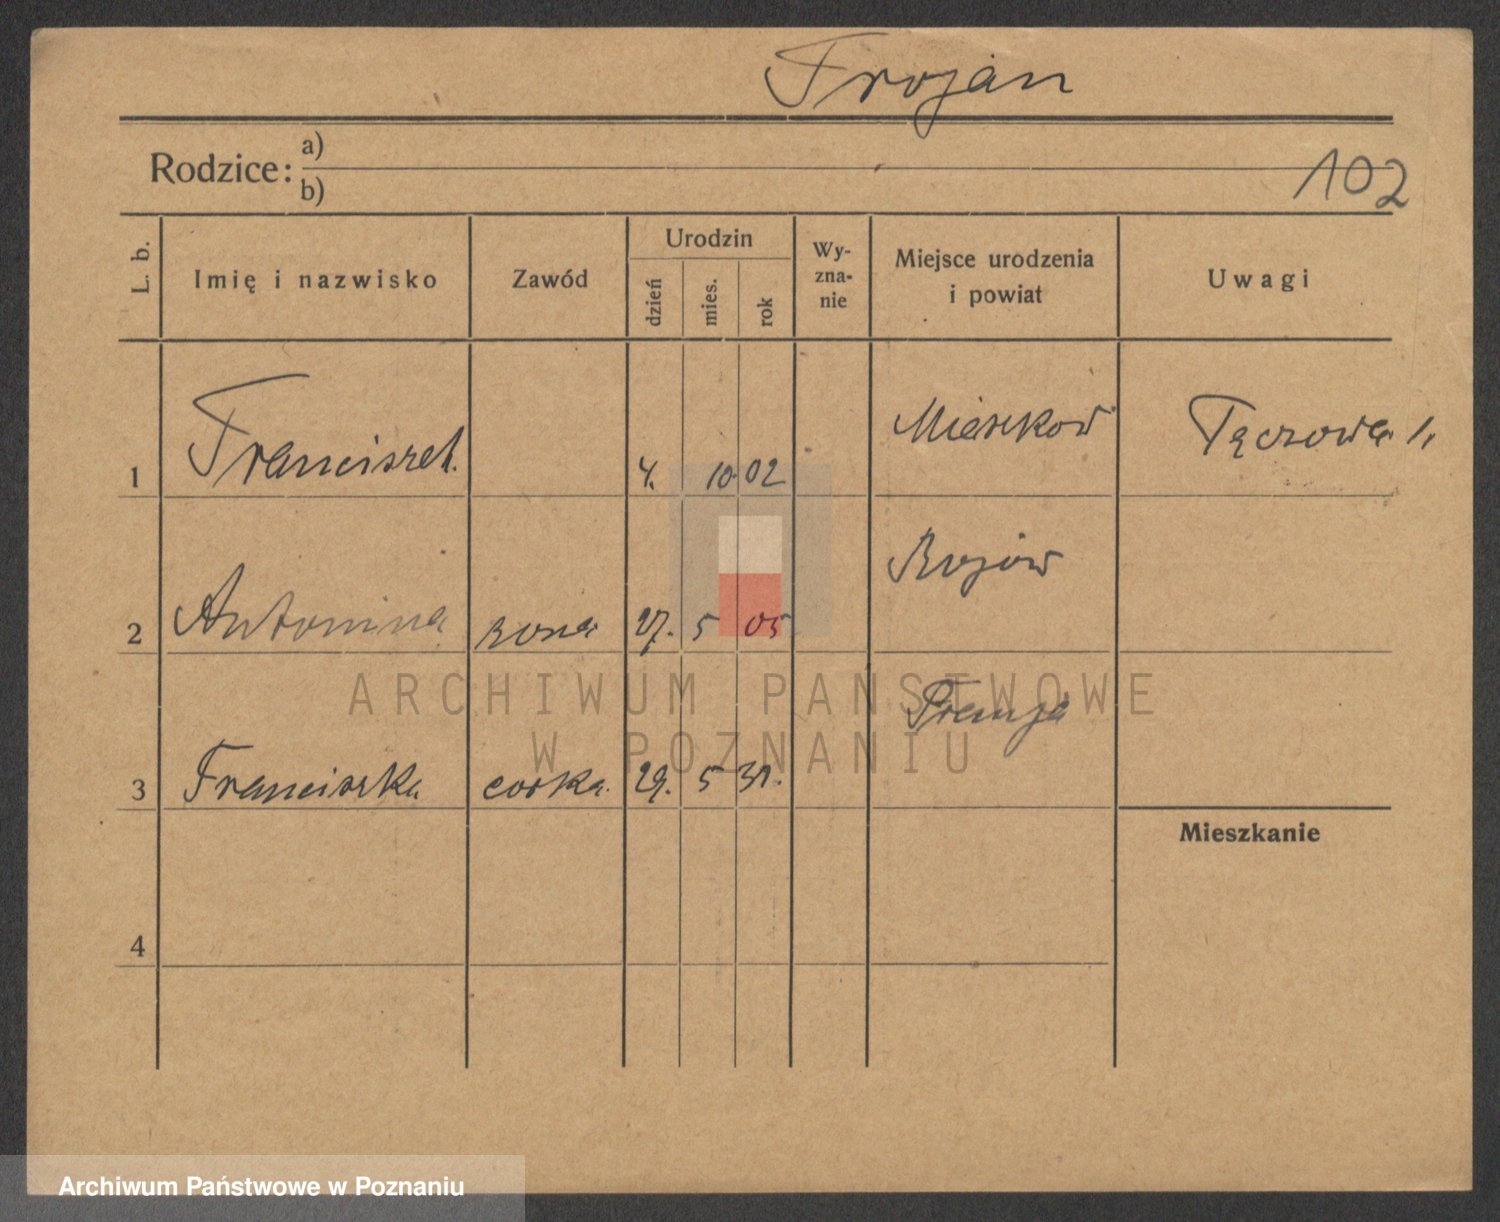 Trojan
Rodzice: a)
b)
102
L. b. Imię i nazwisko Zawód Urodzin dzień mies. rok Wy-zna-nie Miejsce urodzenia i powiat Uwagi
1 Franciszek. 4. 10. 02 Mieszków Tęczowa 1.
2 Antonina żona 27. 5 05 Rojów
3 Franciszka córka. 29. 5 31. Francja
Mieszkanie
4
ARCHIWUM PAŃSTWOWE
W POZNANIU
Archiwum Państwowe w Poznaniu